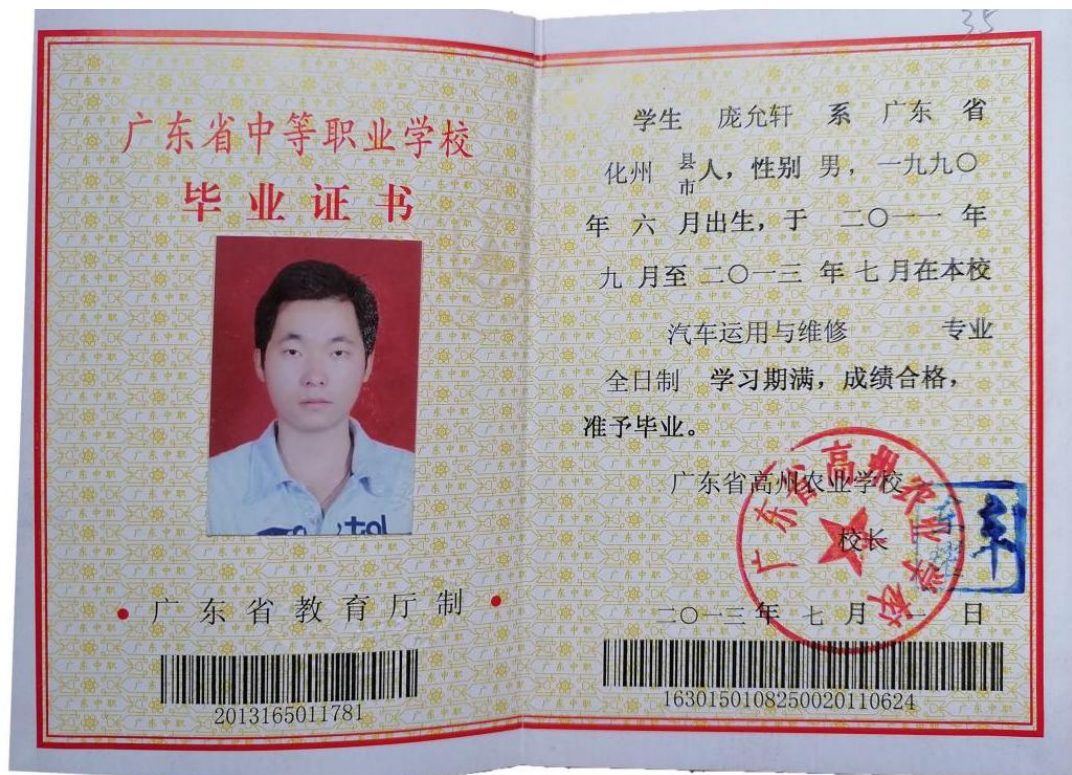 广东省中等职业学校
毕业证书
广东省教育厅制
2013165011781
35
学生 庞允轩 系 广东 省
化州 县市人，性别 男， 一九九〇
年 六 月出生，于 二〇一一 年
九 月至 二〇一三 年 七 月在本校
汽车运用与维修 专业
全日制 学习期满，成绩合格，
准予毕业。
广东省高州农业学校
校长
二〇一三 年 七 月 一 日
广东省高州农业学校
163015010825002011 0624